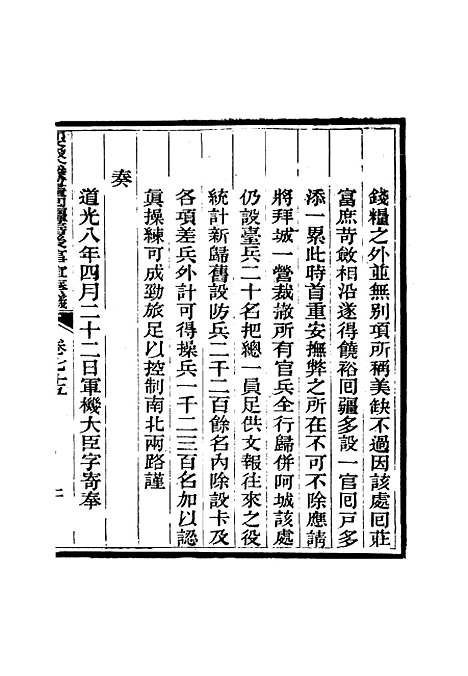 錢糧之外並無別項所稱美缺不過因該處回莊
富庶苛斂相沿遂得饒裕回疆多設一官回戸多
添一累此時首重安撫弊之所在不可不除應請
將拜城一營裁撤所有官兵全行歸併阿城該處
仍設臺兵二十名把總一員足供文報往來之役
統計新歸舊設防兵二千二百餘名內除設卡及
各項差兵外計可得操兵一千二三百名加以認
眞操練可成勁旅足以控制南北兩路謹
奏
道光八年四月二十二日軍機大臣字寄奉
卷七十五